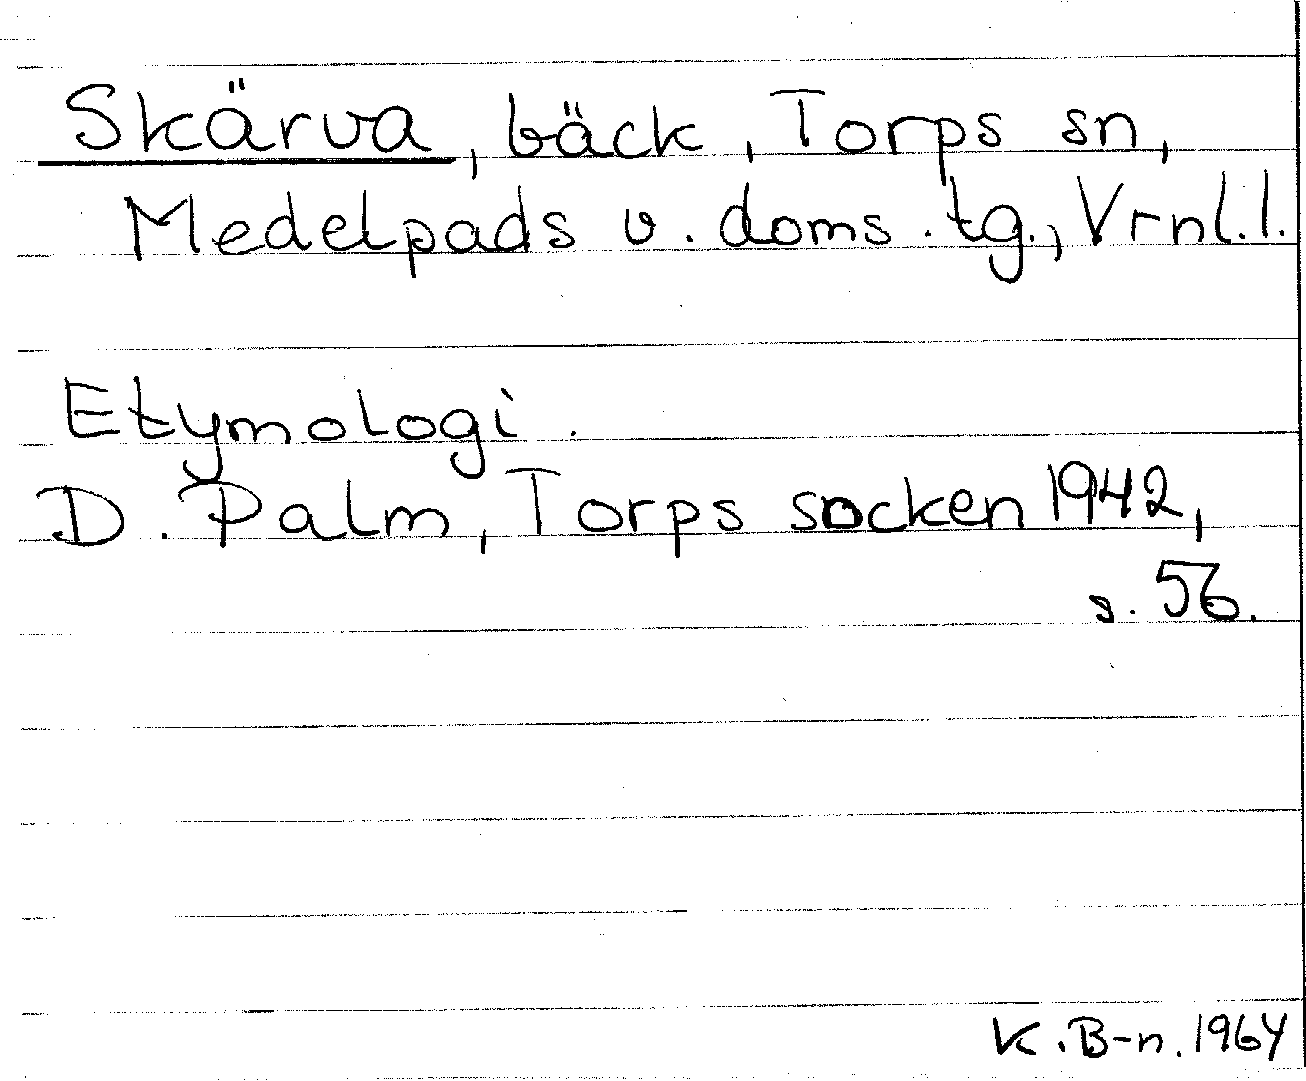 Skärva, bäck, Torps sn,
Medelpads v. doms. tg., Vrnl. l.
Etymologi.
D. Palm, Torps socken 1942,
s. 56.
K. B-n. 1964